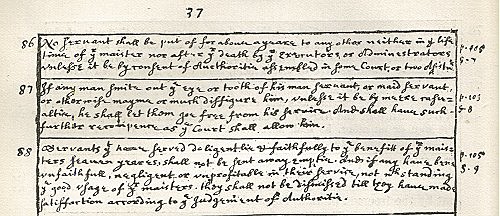 37
86 No servant shall be put of for above a yeare to any other neither in yͤ life
time of yͤ maister nor after yͤ death by yͤ executors or Administrators
unlesse it be by consent of Authoritie assembled in some Court, or two Assista
p. 105
§. 7
87 If any man smite out yͤ eye or tooth of his man servant, or maid servant,
or otherwise mayme or much disfigure him, unlesse it be by meere casu-
altie, he shall let them goe free from his service And shall have such
further recompence as yͤ Court shall allow him.
p. 103
§ 8
88 Servants yͭ have served deligentlie & faithfully to yͤ benefitt of yͤ mais-
ters seaven yeares, shall not be sent away emptie. And if any have bene
unfaithfull, negligent or unprofitable in their service, not withstanding
yͤ good usage of yͤ maisters. they shall not be dismissed till they have made
satisfaction according to yͤ Judgement of Authoritie.
p. 105
§. 9